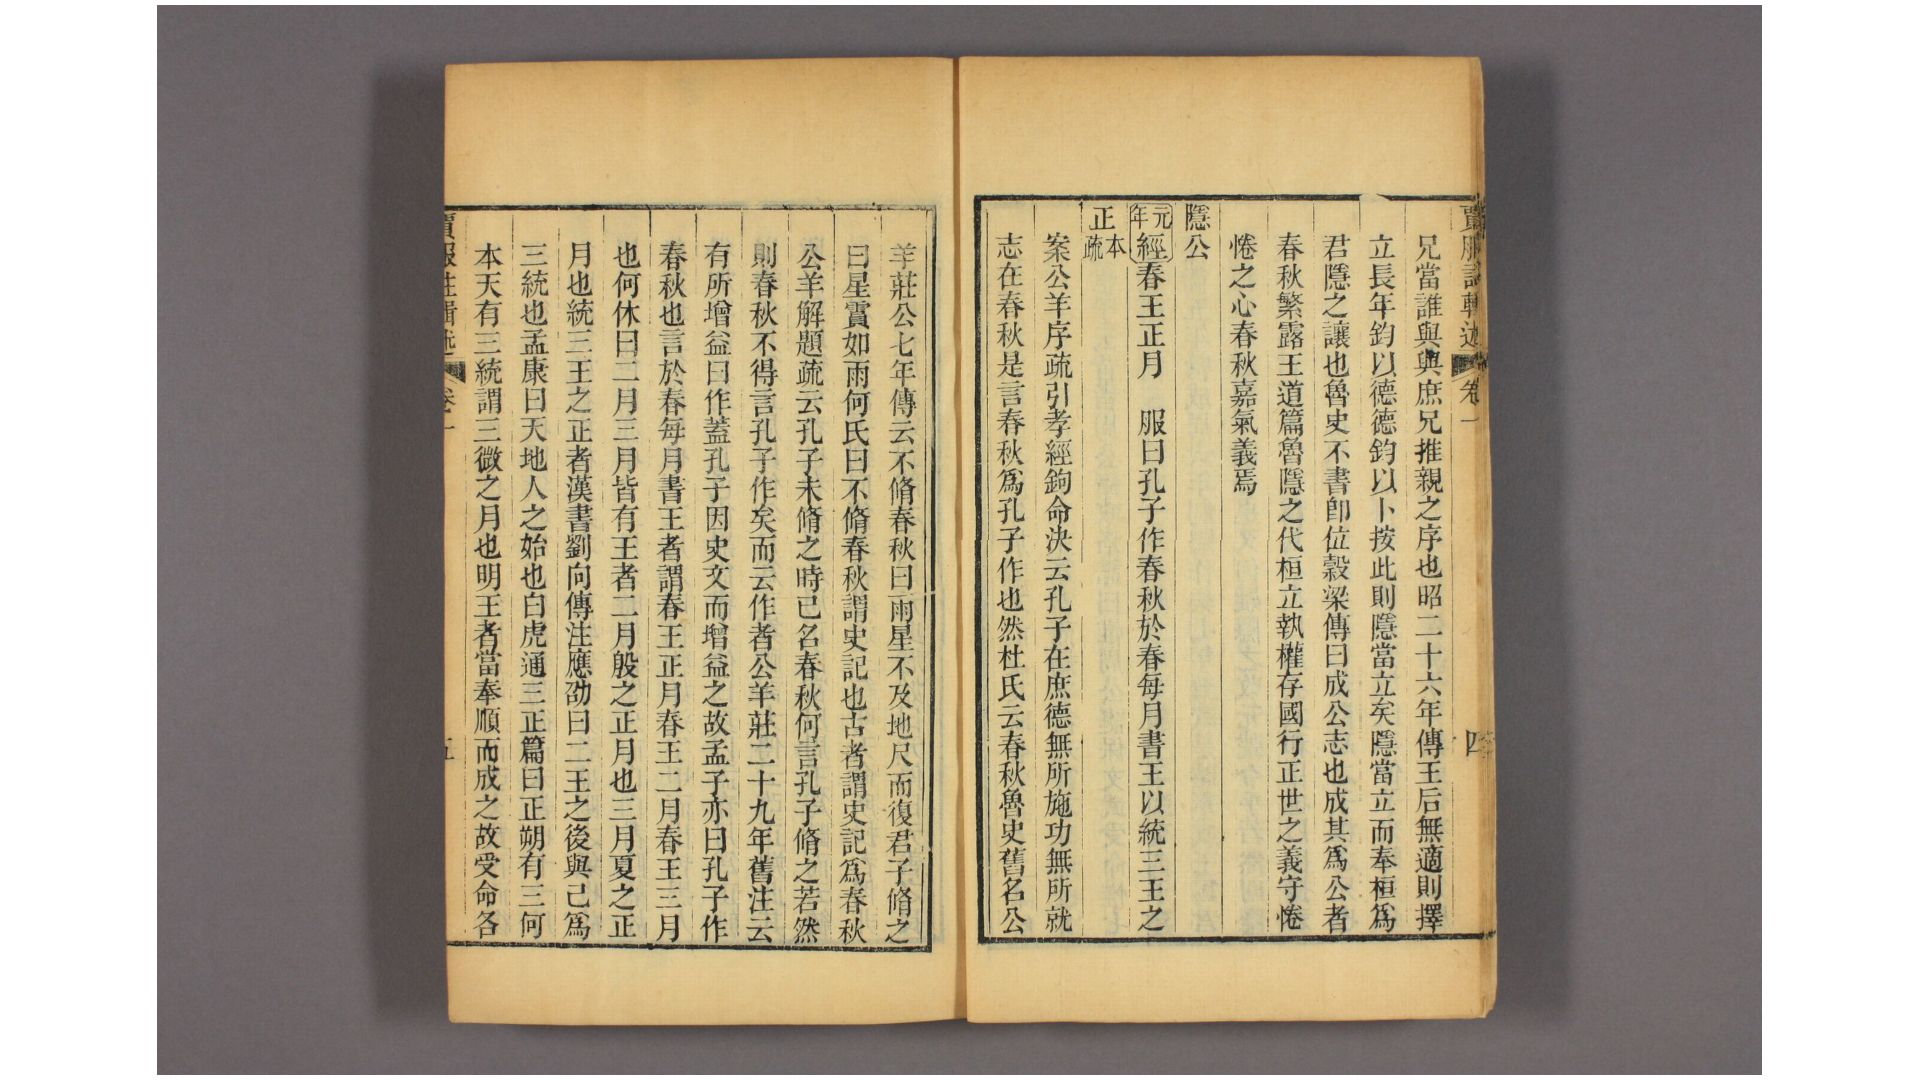 賈服註輯述 卷一 四
兄當誰與與庶兄推親之序也昭二十六年傳王后無適則擇
立長年鈞以德德鈞以卜按此則隱當立矣隱當立而奉桓爲
君隱之讓也魯史不書卽位穀梁傳曰成公志也成其爲公者
春秋繁露王道篇魯隱之代桓立執權存國行正世之義守惓
惓之心春秋嘉氣義焉
隱公
元年經春王正月 服曰孔子作春秋於春每月書王以統三王之
正本疏
案公羊序疏引孝經鉤命決云孔子在庶德無所施功無所就
志在春秋是言春秋爲孔子作也然杜氏云春秋魯史舊名公
羊莊公七年傳云不脩春秋曰雨星不及地尺而復君子脩之
曰星霣如雨何氏曰不脩春秋謂史記也古者謂史記爲春秋
公羊解題疏云孔子未脩之時已名春秋何言孔子脩之若然
則春秋不得言孔子作矣而云作者公羊莊二十九年舊注云
有所增益曰作蓋孔子因史文而增益之故孟子亦曰孔子作
春秋也言於春每月書王者謂春王正月春王二月春王三月
也何休曰二月三月皆有王者二月殷之正月也三月夏之正
月也統三王之正者漢書劉向傳注應劭曰二王之後與己爲
三統也孟康曰天地人之始也白虎通三正篇曰正朔有三何
本天有三統謂三微之月也明王者當奉順而成之故受命各
賈服註輯述 卷一 五